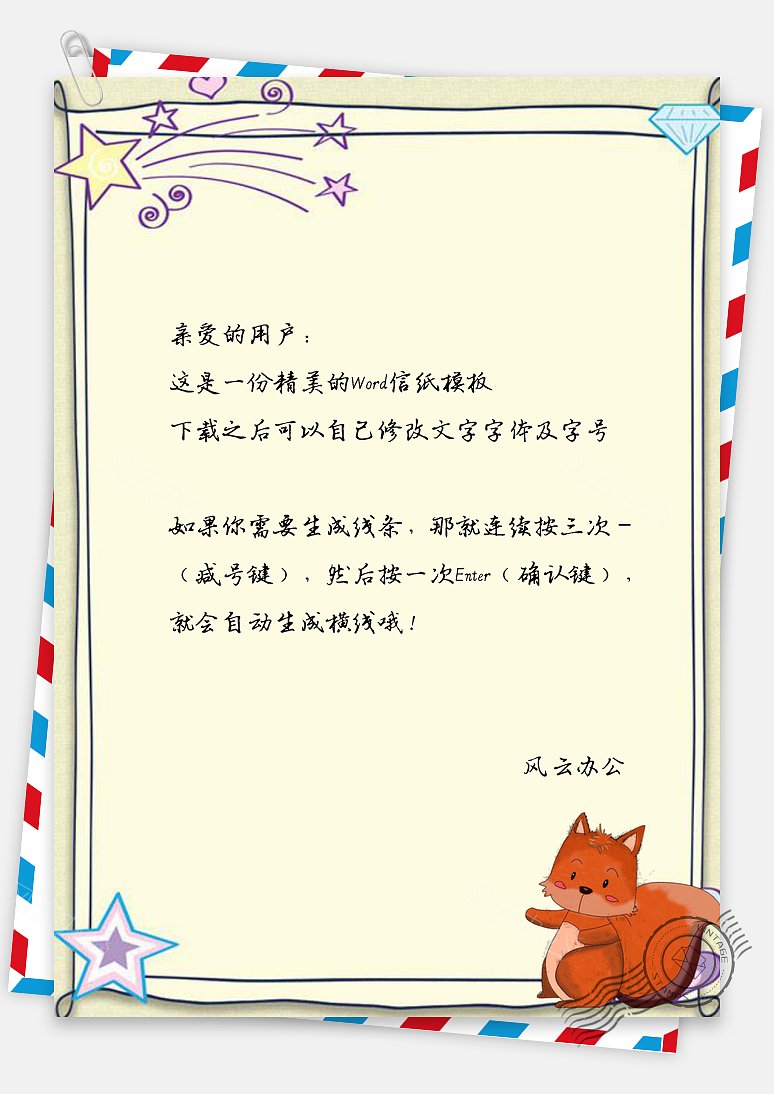 亲爱的用户：
这是一份精美的Word信纸模板
下载之后可以自己修改文字字体及字号
如果你需要生成线条，那就连续按三次-
（减号键），然后按一次Enter（确认键），
就会自动生成横线哦！
风云办公
VINTAGE
STAMP